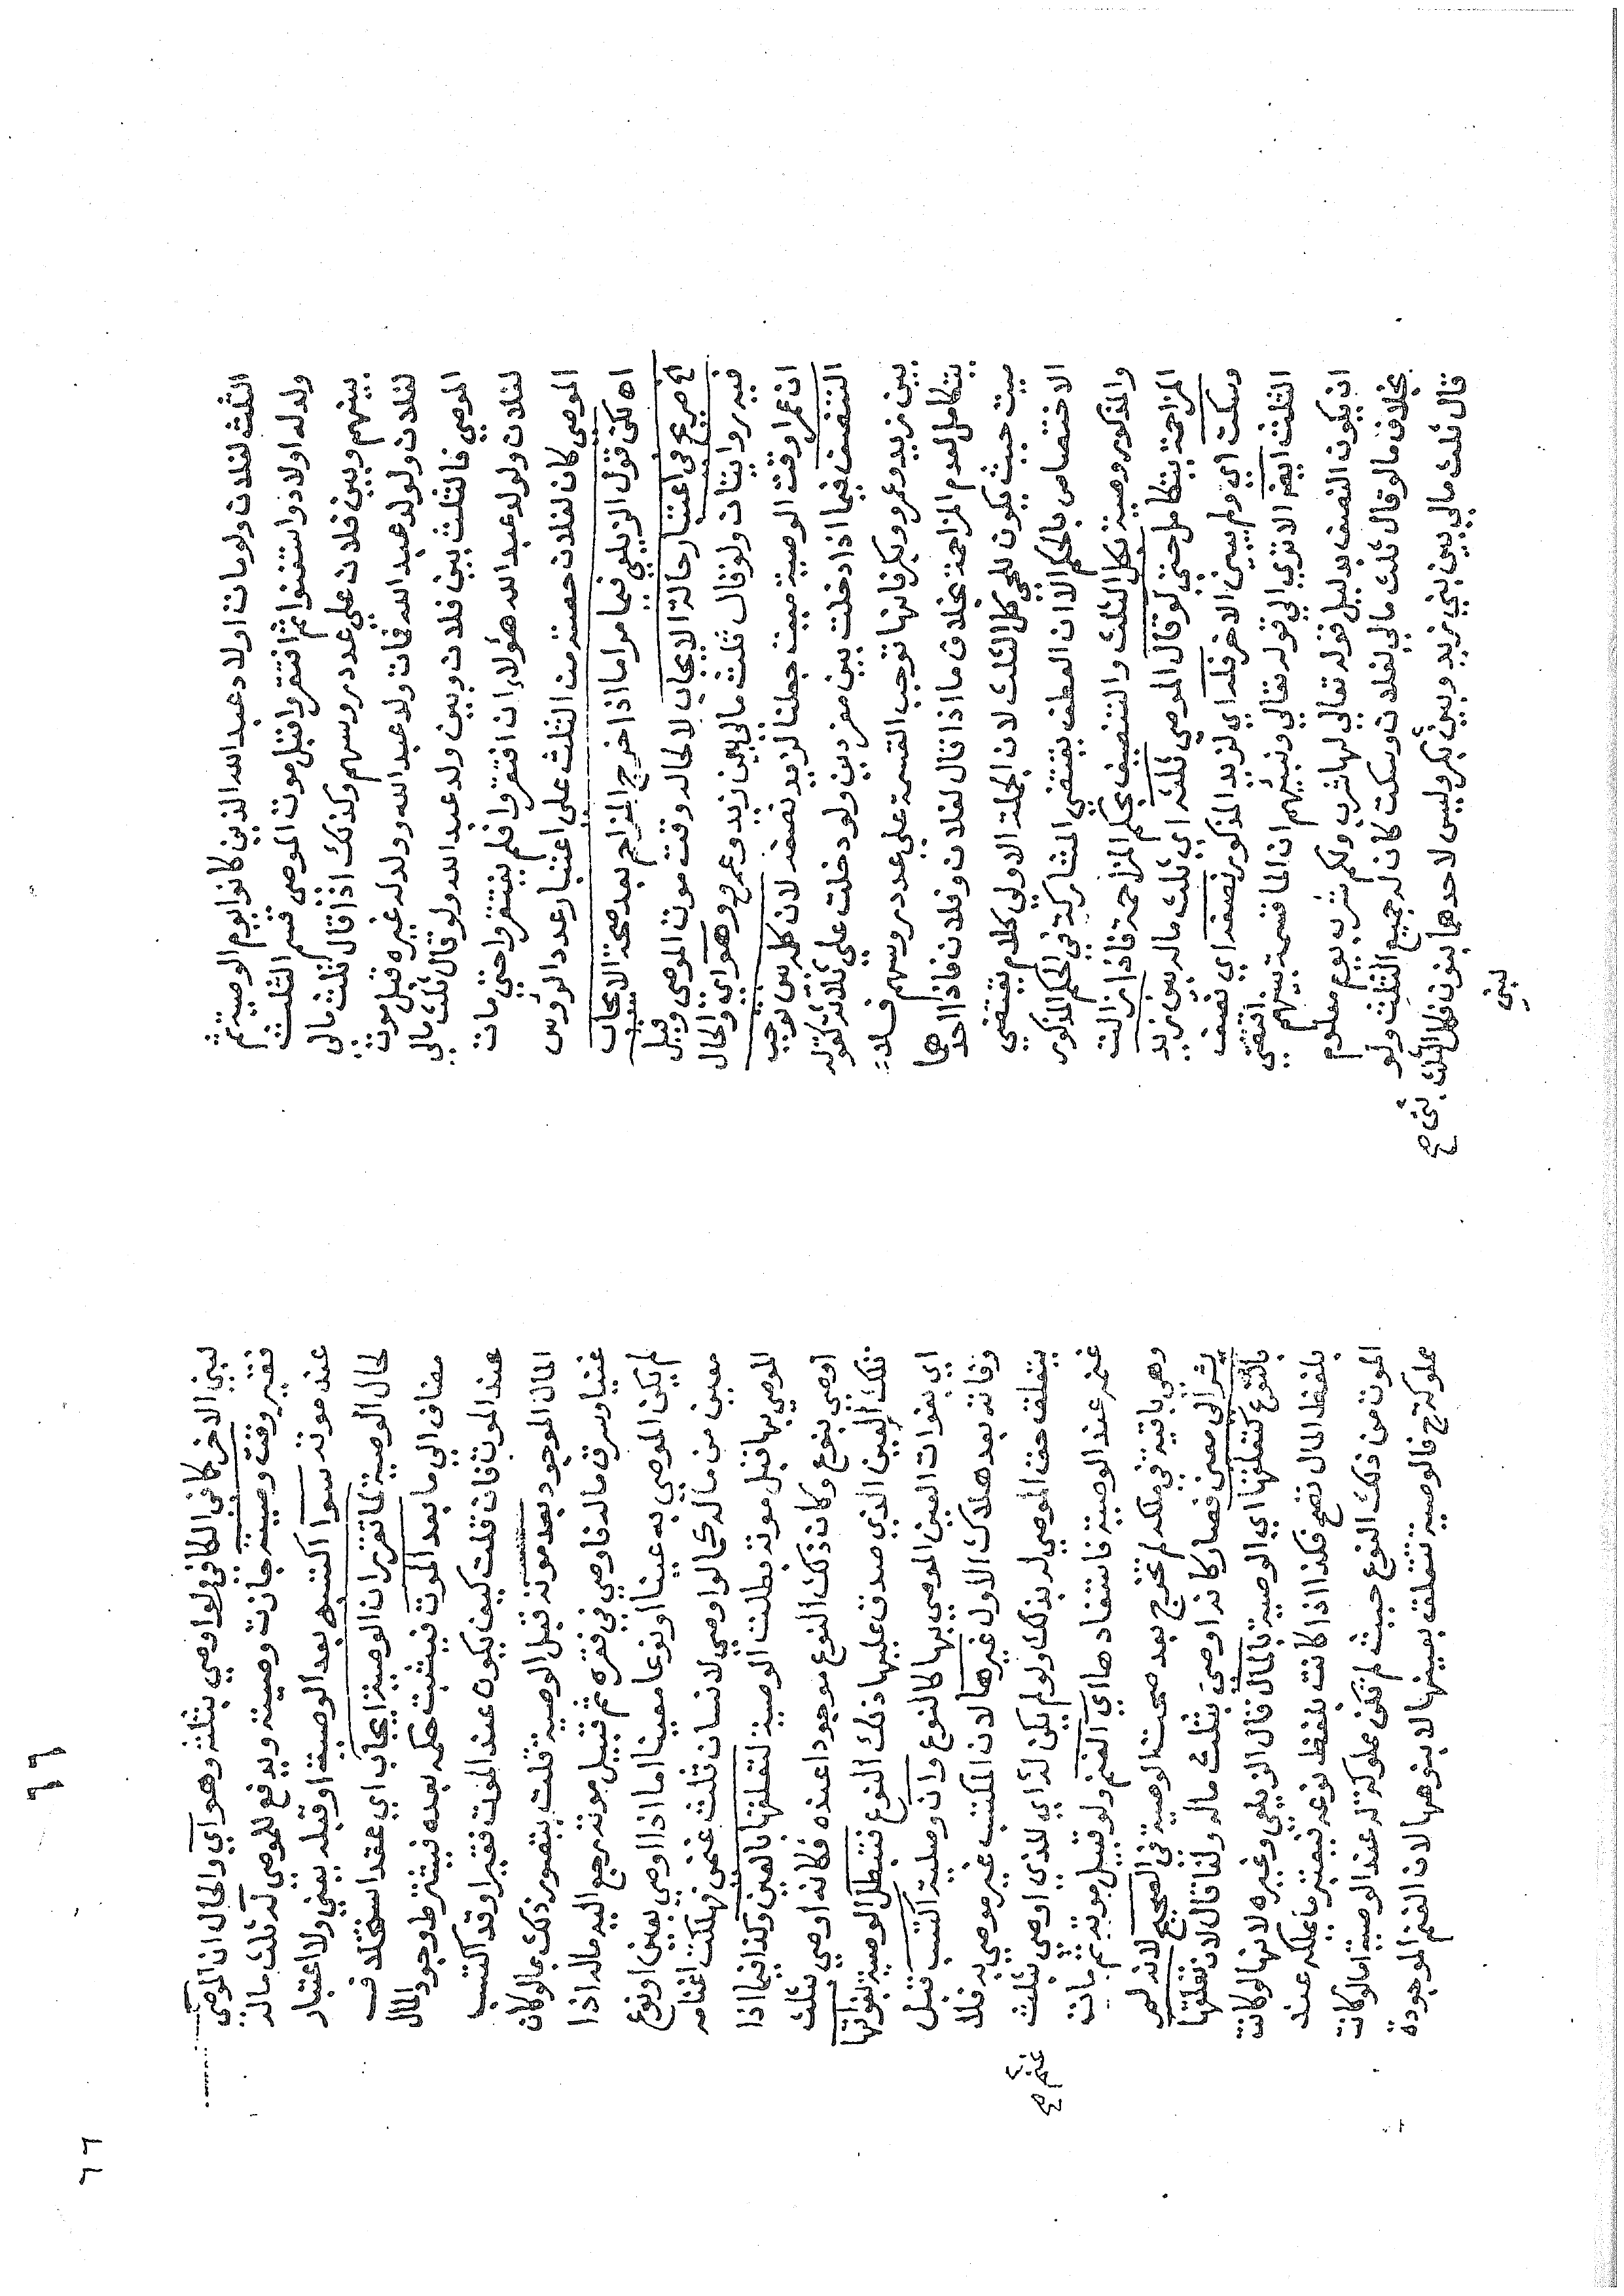 الثلث لفلان ولو مات اولاد عبدالله الذين كانوا يوم الوصية ثم
ولد له اولاد واستغنوا ثم افتقروا قبل موت الموصي قسم الثلث
بينهم وبين فلان علي عدد روسهم وكذلك اذا قال ثلث مالي
لفلان ولولد عبدالله فمات ولد عبدالله وولد له غيره قبل موت
الموصي فالثلث بين فلان وبين ولد عبدالله ولو قال ثلث مالي
لفلان ولولد عبدالله هؤلاء ان افتقروا فلم يفتقروا حتي مات
الموصي كان لفلان حصته من الثلث علي اعتبار عدد الرؤس
اه لكن قول الزيلعي فيما مر اما اذا خرج المزاحم بعد صحة الايجاب
الخ صريح في اعتبار حالة الايجاب لا لحالة وقت موت الموصي وقيل
فيه روايتان ولو قال ثلث مالي بين زيد وعمرو وهو اي والحال
ان عمرا وقت الوصية ميت جعلنا لزيد نصفه لان كلمة بين توجب
التنصيف فيما اذا دخلت بين مفردين ولو دخلت علي ثلاثة كقوله
بين زيد وعمرو وبكر فانها توجب القسمة علي عدد روسهم فلا
يتكامل لعدم المزاحمة بخلاف ما اذا قال لفلان وفلان فاذا احدهما
ميت حيث يكون للحي كل الثلث لان الجملة الاولي كلام يقتضي
الاختصاص بالحكم الا ان العطف يقتضي المشاركة في الحكم المذكور
والمذكور وصية بكل الثلث والتنصيف بحكم المزاحمة فاذا زالت
المزاحمة يتكامل حتي لو قال الموصي ثلثه اي ثلث ماله بين زيد
وسكت اي ولم يبين الاخر فله اي لزيد المذكور نصفه اي نصف
الثلث ايضا الا تري الي قوله تعالي ونبئهم ان الما قسمة بينهم اقتضي
ان يكون النصف بدليل قوله تعالي لها شرب ولكم شرب يوم معلوم
بخلاف ما لو قال ثلث مالي لفلان وسكت كان له جميع الثلث ولو
قال ثلث مالي بين بني زيد وبين بكر وليس لاحدهما بنون فكل الثلث
بني صح
لبني
٦٦
لبني الاخر كافي الكافي لو اوصي بثلثه وهو اي والحال ان الموصي
فقير وقت وصيته جازت وصيته ويدفع للموصي له ثلث ماله
عند موته سوا اكتسبه بعد الوصية او قبله يعني ولا اعتبار
لحال الوصية لما تقرر ان الوصية ايجاب اي عقد استخلاف
مضاف الي ما بعد الموت فيثبت حكمه بعده فيشترط وجود المال
عند الموت فان قلت كيف يكون عند الموت فقيرا وقد اكتسب
المال الموجود بعد موته قبل الوصية قلت يتصور ذلك بما لو كان
غنيا وسرق ماله فاوصي في فقره ثم قبيل موته رجع اليه ماله اذا
لم يكن الموصي به عينا او نوعا معينا اما اذا اوصي بعين او نوع
معين من ماله كما لو اوصي لانسان ثلث غنمي فهلكت اغنامه
الموصي بها قبل موته بطلت الوصية لتعلقها بالعين وكذا فيما اذا
اوصي بنوع وكان ذلك النوع موجودا عنده فكانه اوصي بثلث
تلك العين الذي صدق عليها ذلك النوع فتبطل الوصية بفواتها
اي بفوات العين الموصي بها كالنوع وان وصلية اكتسب قبل
وفاته بعد هلاك الاول غيرها لان المكتسب غير موصي به فلا
يتعلق حق الموصي له بذلك ولو لم يكن له اي للذي اوصي بثلث
غنم صح
غنمه عند الوصية فاستفادها اي الغنم ولو قبيل موته ثم مات
وهي باقية في ملكه لم تخرج بعد صحت الوصية في الصحيح لانه لم
يشر الي معين فصار كانه اوصي بثلث ماله ولذا قال لان تعلقها
بالنوع كتعلقها اي الوصية بالمال قال الزيلعي وغيره لانها لو كانت
بلفظ المال تصح فكذا اذا كانت بلفظ نوعه فيعتبر ما يملكه عند
الموت من ذلك النوع حيث لم تكن مملوكة له عند الوصية اما لو كانت
مملوكة ح فالوصية تتعلق بعينها لا بنوعها لان الغنم الموجودة
٦٦